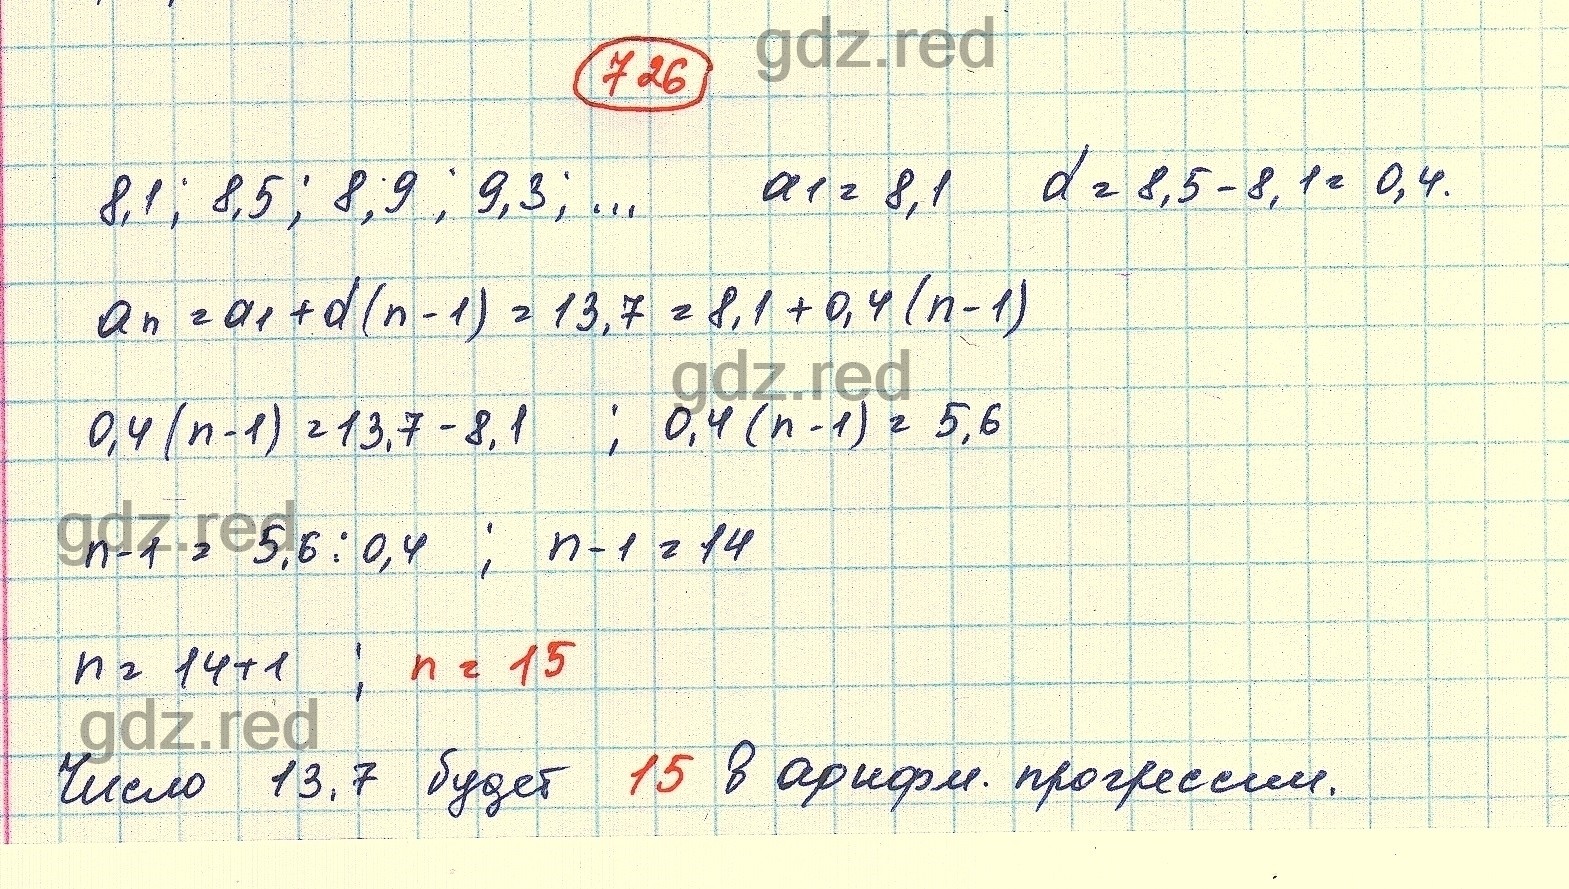 gdz.red
726
8,1; 8,5; 8,9; 9,3; ... a1 = 8,1 d = 8,5 - 8,1 = 0,4.
an = a1 + d(n-1) = 13,7 = 8,1 + 0,4(n-1)
gdz.red
0,4(n-1) = 13,7 - 8,1 ; 0,4(n-1) = 5,6
gdz.red
n-1 = 5,6 : 0,4 ; n-1 = 14
n = 14+1 ; n = 15
gdz.red
Число 13,7 будет 15 в арифм. прогрессии.